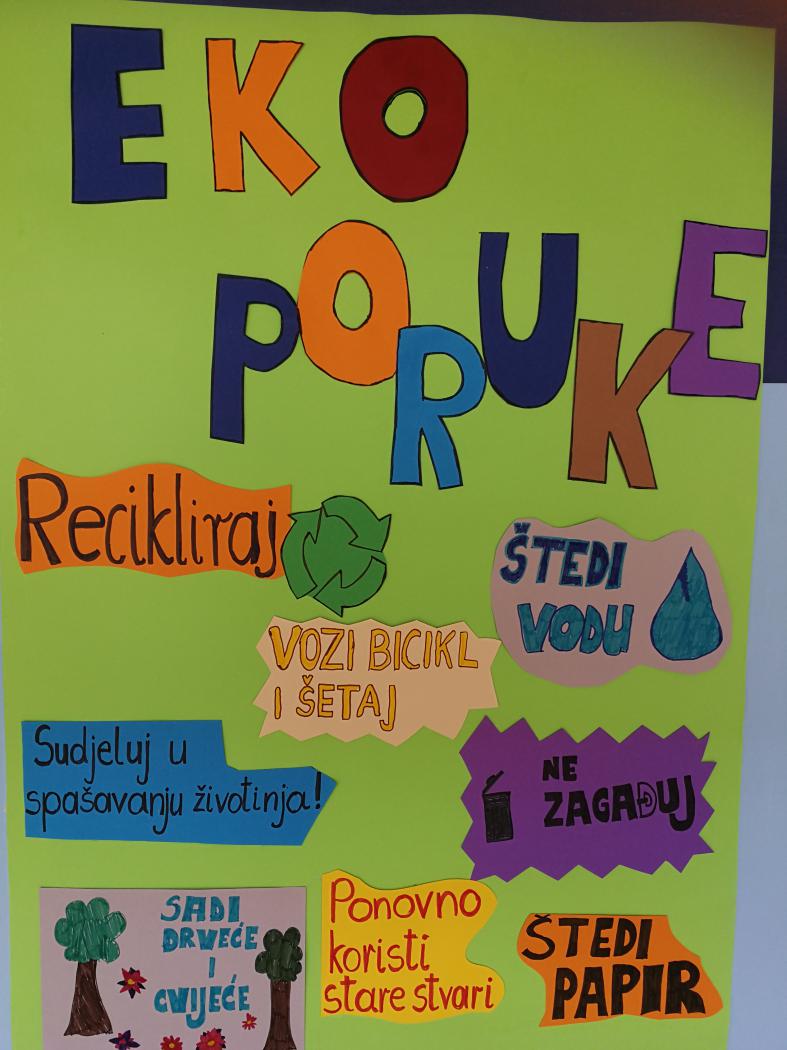 EKO
PORUKE
Recikliraj
ŠTEDI
VODU
VOZI BICIKL
I ŠETAJ
Sudjeluj u
spašavanju životinja!
NE
ZAGAĐUJ
SADI
DRVEĆE
I
CVIJEĆE
Ponovno
koristi
stare stvari
ŠTEDI
PAPIR